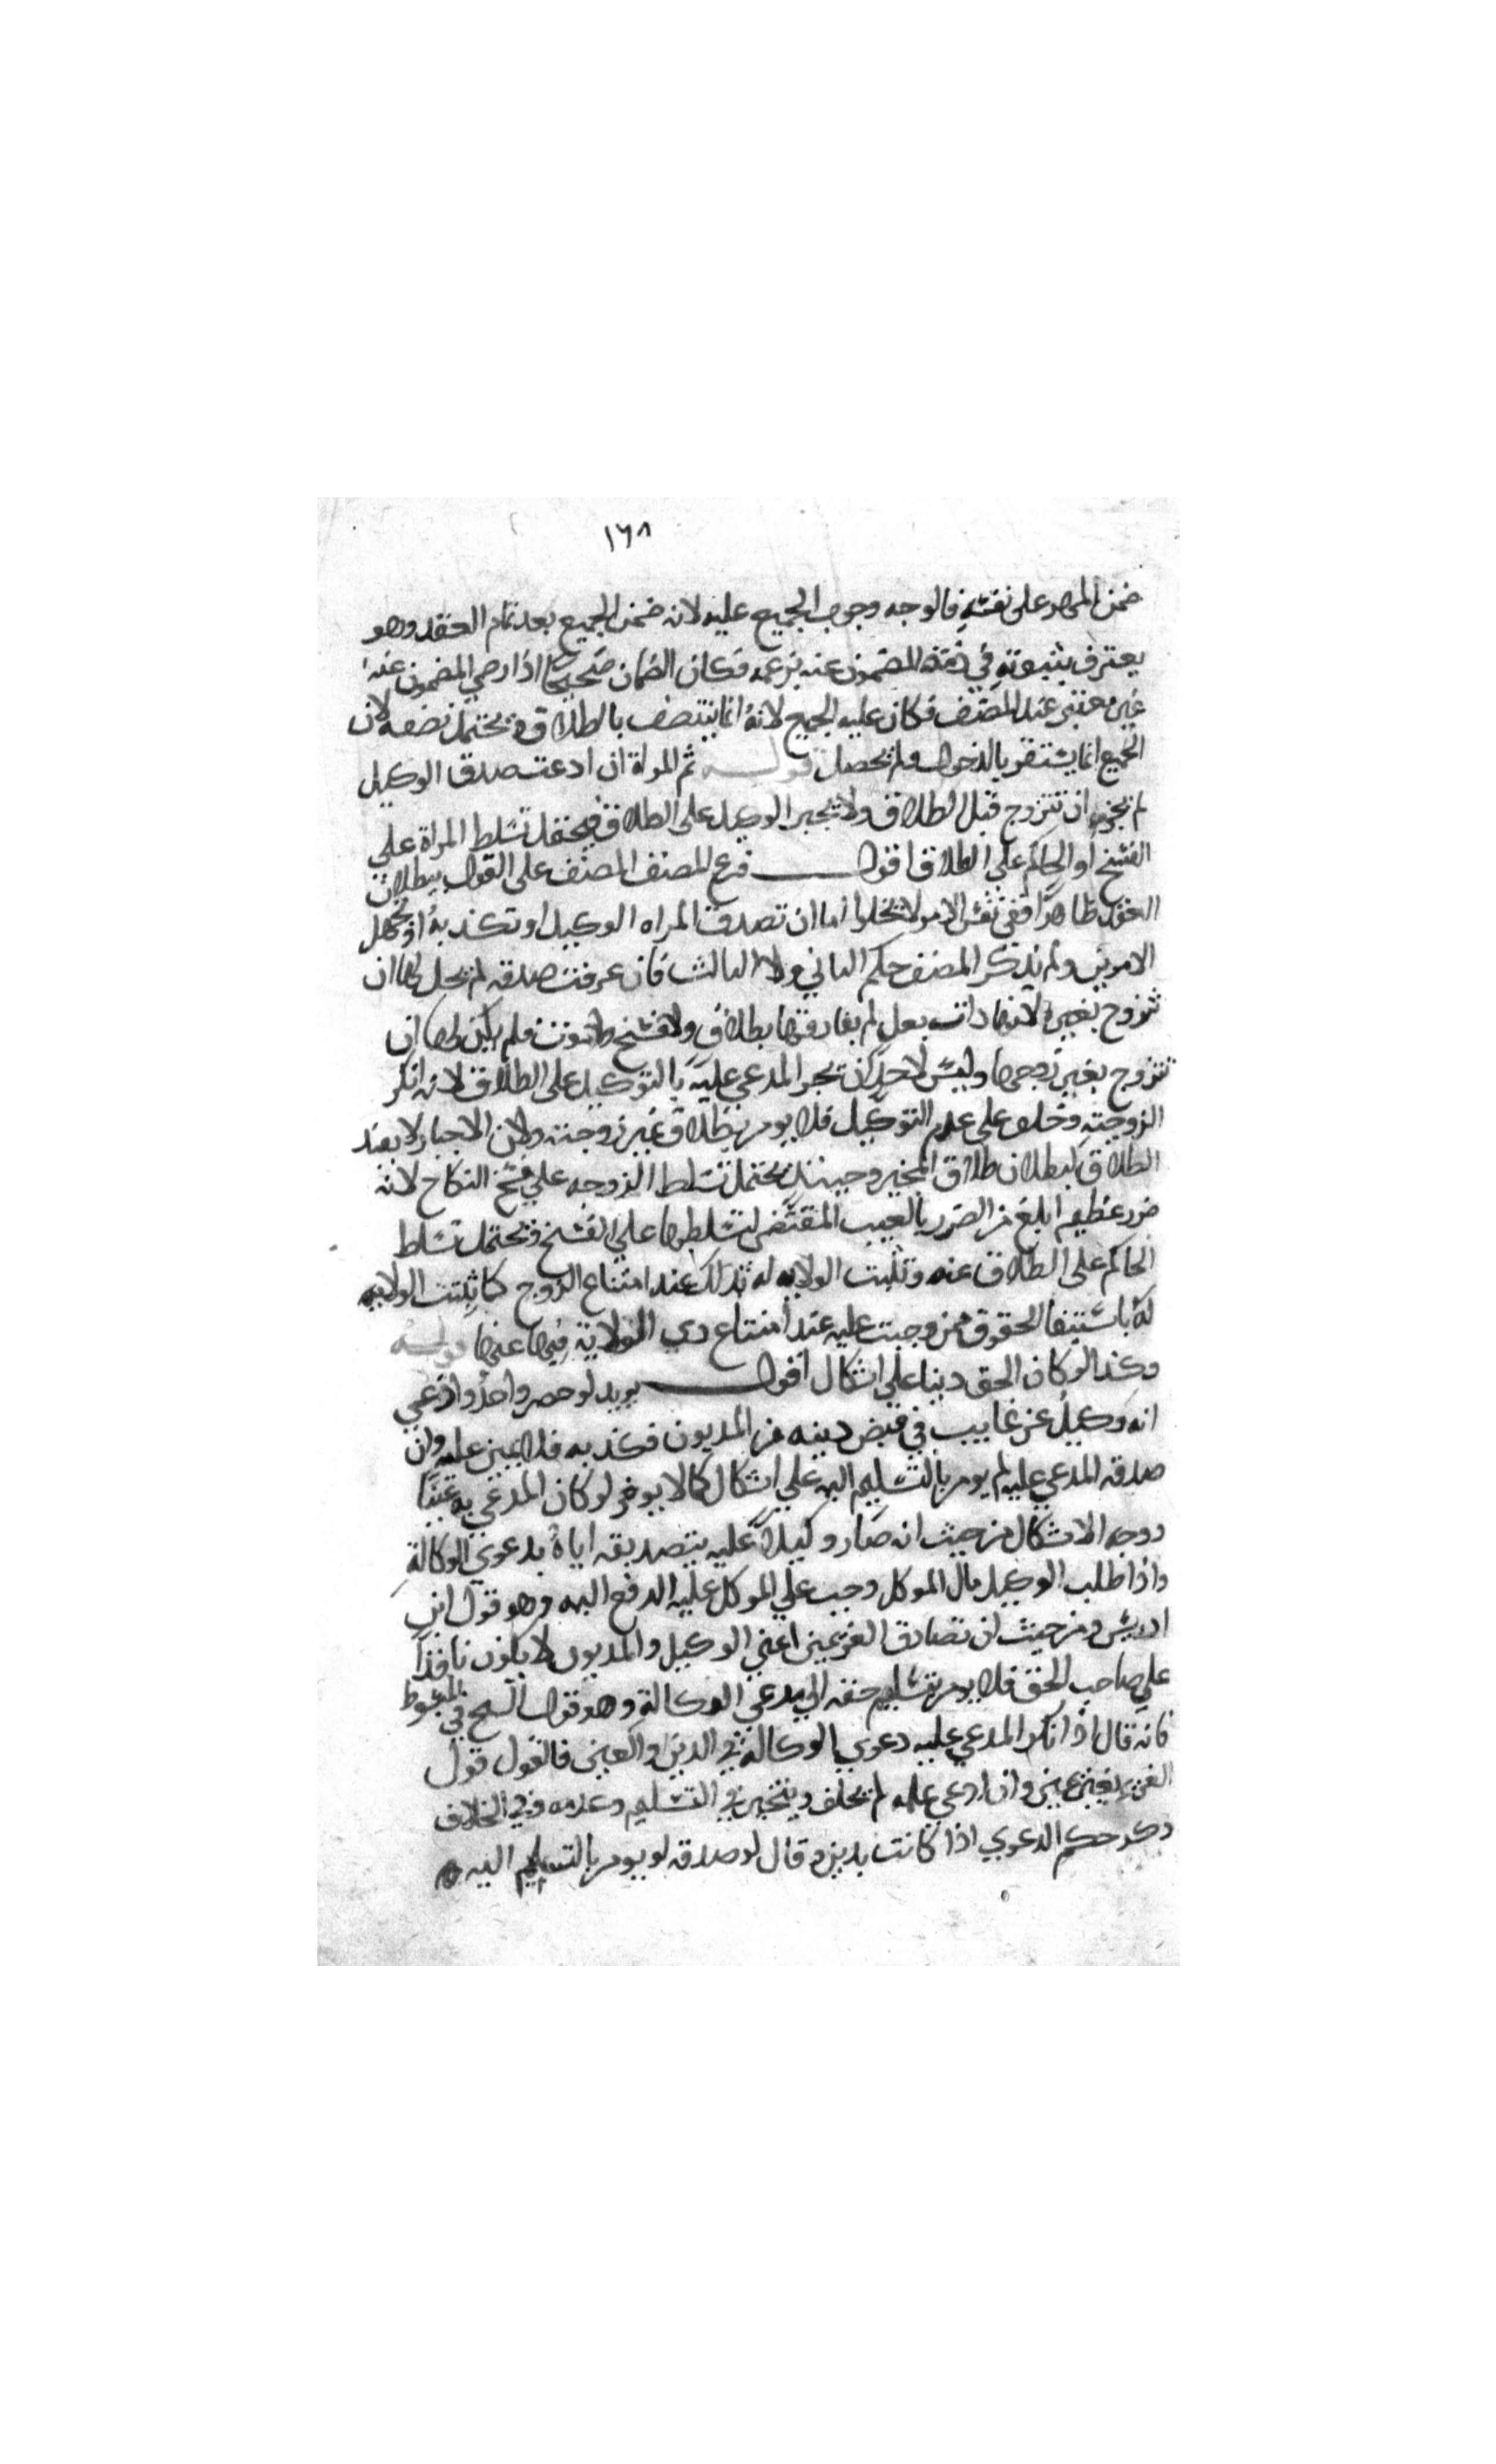 ١٦٨
ضمن المهر على نفسه فالوجه وجوب الجميع عليه لانه ضمن الجميع بعد تمام العقد وهو
يعترف بثبوته في ذمة المضمون عنه بزعمه فكان الضمان صحيحا اذا رضي المضمون عنه
غير معتبر عند المصنف فكان عليه الجميع لانه انما ينتصف بالطلاق ويحتمل نصفه لان
الجميع انما يستقر بالدخول ولم يحصل قوله ثم المراة ان ادعت صدق الوكيل
لم يجز ان تتزوج قبل الطلاق ولا يجبر الوكيل على الطلاق فيحتمل تسلط المراة على
الفسخ او الحاكم على الطلاق اقول فرع المصنف على القول ببطلان
العقد ظاهرا ففي نفس الامر لا يخلوا اما ان تصدق المراه الوكيل او تكذبه او تجهل
الامرين ولم يذكر المصنف حكم الثاني ولا الثالث فان عرفت صدقه لم يحل لها ان
تتزوج بغيره لانها ذات بعل لم يفارقها بطلاق ولا فسخ ولا موت فلم يكن لها ان
تتزوج بغير زوجها وليس لاحد ان يجبر المدعي عليه بالتوكيل على الطلاق لانه انكر
الزوجية وحلف على عدم التوكيل فلا يومر بطلاق غير زوجته ولان الاجبار لا يفيد
الطلاق لبطلان طلاق المجبر وحينئذ يحتمل تسلط الزوجه على فسخ النكاح لانه
ضرر عظيم ابلغ من الضرر بالعيب المقتضي لتسلطها على الفسخ ويحتمل تسلط
الحاكم على الطلاق عنه وتثبت الولايه له بذلك عند امتناع الزوج كما يثبت الولايه
له باستيفا الحقوق ممن وجبت عليه عند امتناع ذي الولاية فيها عنها قوله
وكذا لو كان الحق دينا على اشكال اقول يريد لو حضر واحد وادعى
انه وكيل عن غايب في قبض دينه من المديون فكذبه فلا يمين عليه وان
صدقه المدعي عليه لم يومر بالتسليم اليه على اشكال كما لا يومر لو كان المدعي به عينا
ووجه الاشكال من حيث انه صار وكيلا عليه بتصديقه اياه بدعوي الوكالة
واذا طلب الوكيل مال الموكل وجب على الموكل عليه الدفع اليه وهو قول ابن
ادريس ومن حيث ان تصادق الغريمين اعني الوكيل والمديون لا يكون نافذا
على صاحب الحق فلا يومر بتسليم حقه الى مدعي الوكالة وهو قول الشيخ في المبسوط
فانه قال اذا انكر المدعي عليه دعوي الوكالة في الدين والعين فالقول قول
الغريم بغير يمين وان ادعي علمه لم يحلف ويتخير في التسليم وعدمه وفي الخلاف
ذكر حكم الدعوي اذا كانت بدين وقال لو صدقه لم يومر بالتسليم اليه